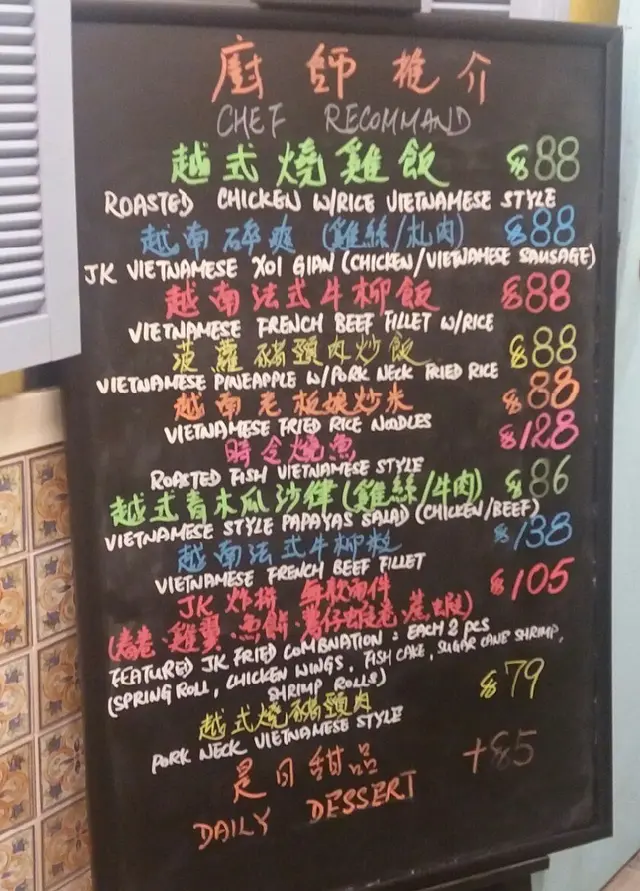 廚師推介
CHEF RECOMMAND
越式燒雞飯 $88
ROASTED CHICKEN W/RICE VIETNAMESE STYLE
越南碎爽 (雞絲/札肉) $88
JK VIETNAMESE XOI GIAN (CHICKEN/VIETNAMESE SAUSAGE)
越南法式牛柳飯 $88
VIETNAMESE FRENCH BEEF FILLET W/RICE
菠蘿豬頸肉炒飯 $88
VIETNAMESE PINEAPPLE W/PORK NECK FRIED RICE
越南老板娘炒米 $88
VIETNAMESE FRIED RICE NOODLES
時令燒魚 $128
ROASTED FISH VIETNAMESE STYLE
越式青木瓜沙律(雞絲/牛肉) $86
VIETNAMESE STYLE PAPAYAS SALAD (CHICKEN/BEEF)
越南法式牛柳粒 $138
VIETNAMESE FRENCH BEEF FILLET
JK 炸拼 每款兩件 $105
(春卷.雞翼.魚餅.薯仔蝦卷.蔗蝦)
FEATURED JK FRIED COMBNATION : EACH 2 PCS
(SPRING ROLL, CHICKEN WINGS, FISH CAKE, SUGAR CANE SHRIMP,
SHRIMP ROLLS)
越式燒豬頸肉 $79
PORK NECK VIETNAMESE STYLE
是日甜品 +85
DAILY DESSERT